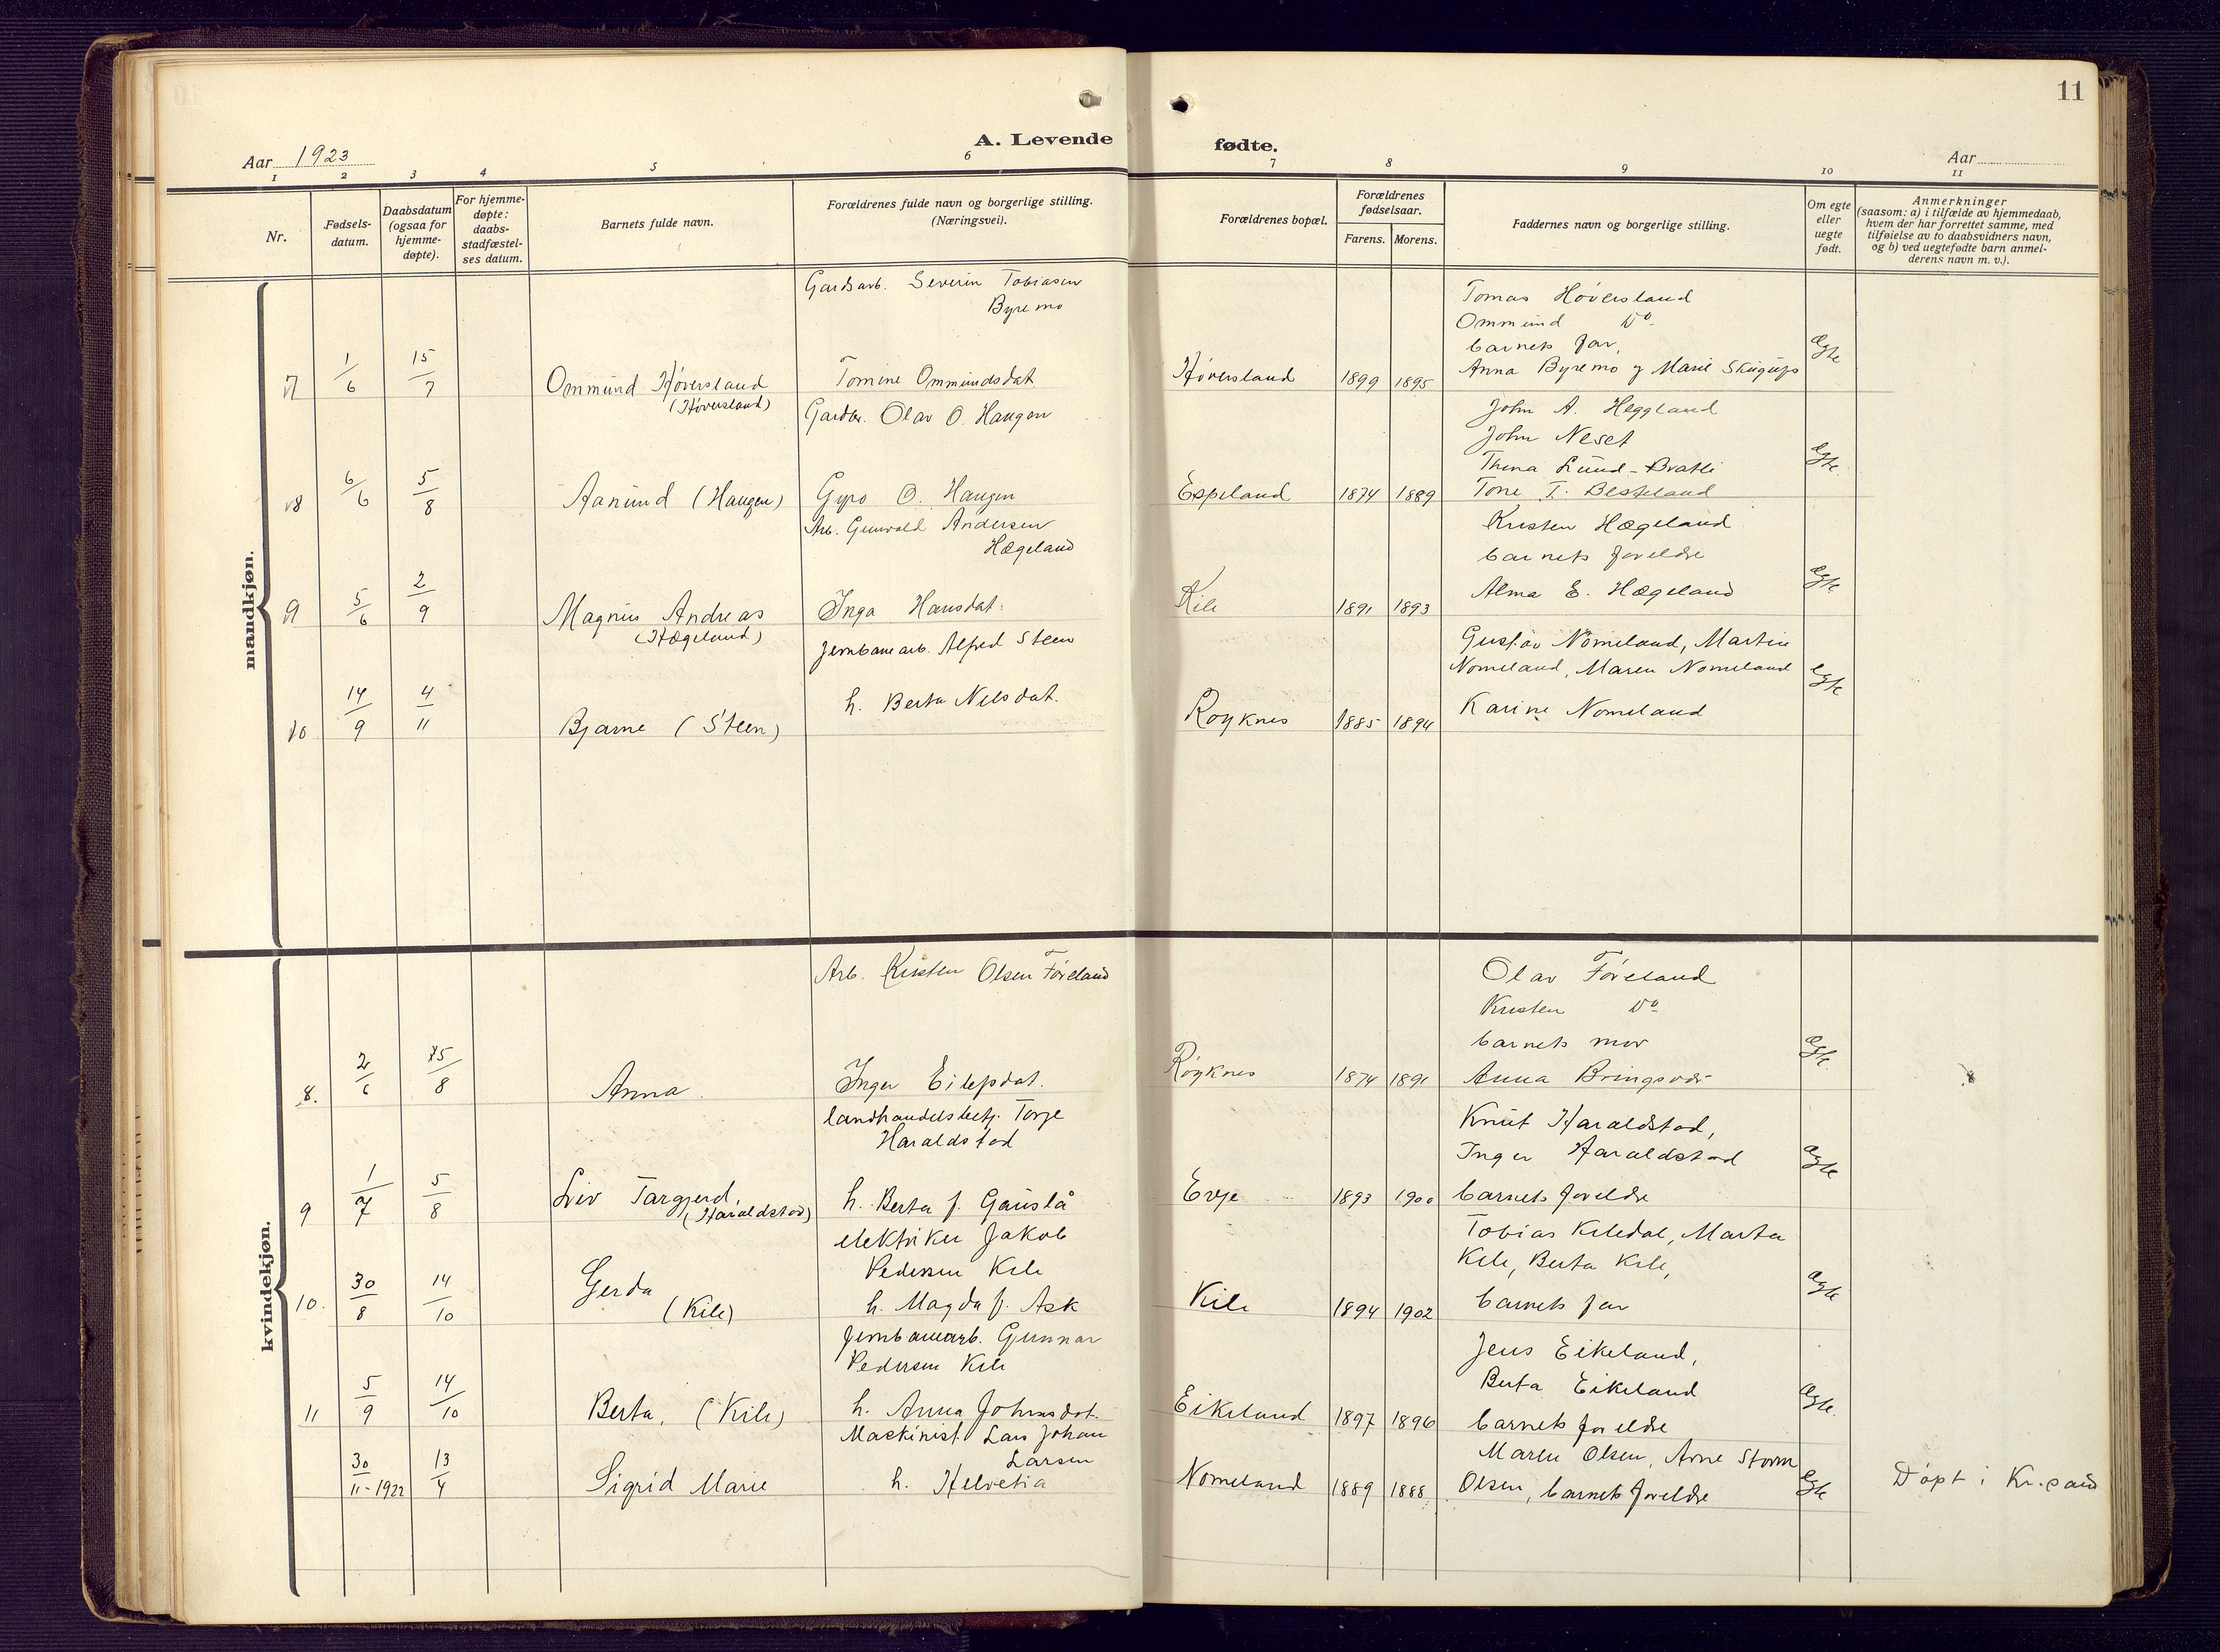 11
A. Levende fødte.
Aar 1923
Aar
1 2 3 4 5 6 7 8 9 10 11
Nr.
Fødsels-
datum.
Daabsdatum
(ogsaa for
hjemme-
døpte).
For hjemme-
døpte:
daabs-
stadfæstel-
ses datum.
Barnets fulde navn.
Forældrenes fulde navn og borgerlige stilling.
(Næringsvei).
Forældrenes bopæl.
Forældrenes
fødselsaar.
Farens. Morens.
Faddernes navn og borgerlige stilling.
Om egte
eller
uegte
født.
Anmerkninger
(saasom: a) i tilfælde av hjemmedaab,
hvem der har forrettet samme, med
tilføielse av to daabsvidners navn,
og b) ved uegtefødte barn anmel-
derens navn m. v.).
mandkjøn.
7 1/6 15/7 Ommund Höversland
(Höversland)
Gardsarb. Severin Tobiasen
Byremo
Tomine Ommundsdat.
Höversland 1899 1895
Tomas Höversland
Ommund Do
barnets far,
Anna Byremo og Marie
Egte
8 6/6 5/8 Aanund (Haugen)
Gardbr. Olav O. Haugen
Gyro O. Haugen
Espeland 1874 1889
John A. Heggland
John Neset
Thina Lund-Bratli
Tone T. Besteland
Egte.
9 5/6 2/9 Magnus Andreas
(Hægeland)
Arb. Gunvald Andersen
Hægeland
Inga Hansdat.
Kile 1891 1893
Kristen Hægeland
barnets foreldre
Alma E. Hægeland
Egte
10 14/9 4/11 Bjarne (Steen)
Jernbanearb. Alfred Steen
h. Berta Nilsdat.
Röyknes 1885 1894
Gustav Nomeland, Martin
Nomeland, Maren Nomeland
Karine Nomeland
Egte
kvindekjøn.
8. 2/6 15/8 Anna.
Arb. Kristen Olsen Föreland
Inger Eilefsdat.
Röyknes 1874 1891
Olav Föreland
Kristen Do
barnets mor
Anna Bringsvær
Egte.
9 1/7 5/8 Liv Targjerd,
(Haraldstad)
landhandelsbetj. Torje
Haraldstad
h. Berta f. Gauslå
Evje 1893 1900
Knut Haraldstad,
Inger Haraldstad
barnets foreldre
Egte
10. 30/8 14/10 Gerda
(Kile)
elektriker Jakob
Pedersen Kile
h. Magda f. Ask
Kile 1894 1902
Tobias Kiledal, Marta
Kile, Berta Kile,
barnets far
Egte
11 5/9 14/10 Berta, (Kile)
Jernbanearb. Gunnar
Pedersen Kile
h. Anna Johnsdat.
Eikeland 1897 1896
Jens Eikeland,
Berta Eikeland
barnets foreldre
Egte.
30/11-1922 13/4 Sigrid Marie
Maskinist Lars Johan
Larsen
h. Helvetia
Nomeland 1889 1888
Maren Olsen, Arne Storm
Olsen, barnets foreldre
Egte
Döpt i Kr.sand